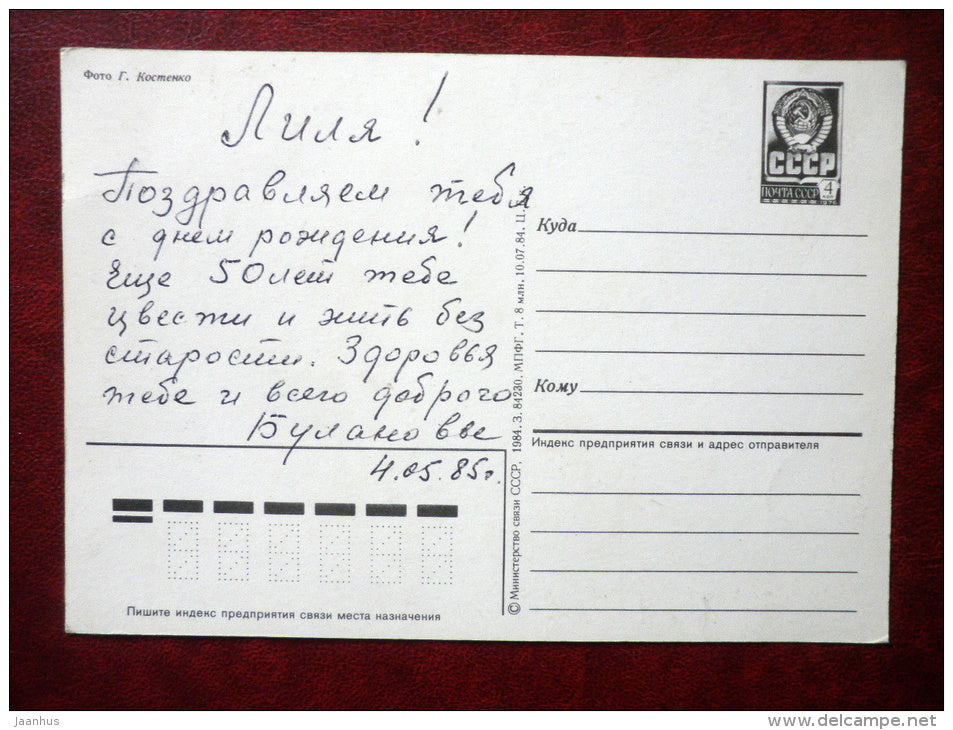 Фото Г. Костенко
Лиля!
Поздравляем тебя
с днем рождения!
Еще 50 лет тебе
цвести и жить без
старости. Здоровья
тебе и всего доброго
Булановы
4.05.85г.
СССР
ПОЧТА СССР 4
1976
Куда
Кому
Индекс предприятия связи и адрес отправителя
© Министерство связи СССР, 1984. З. 84230. МПФГ. Т. 8 млн. 10.07.84. Ц.
Пишите индекс предприятия связи места назначения
Jaanhus
delcampe.net